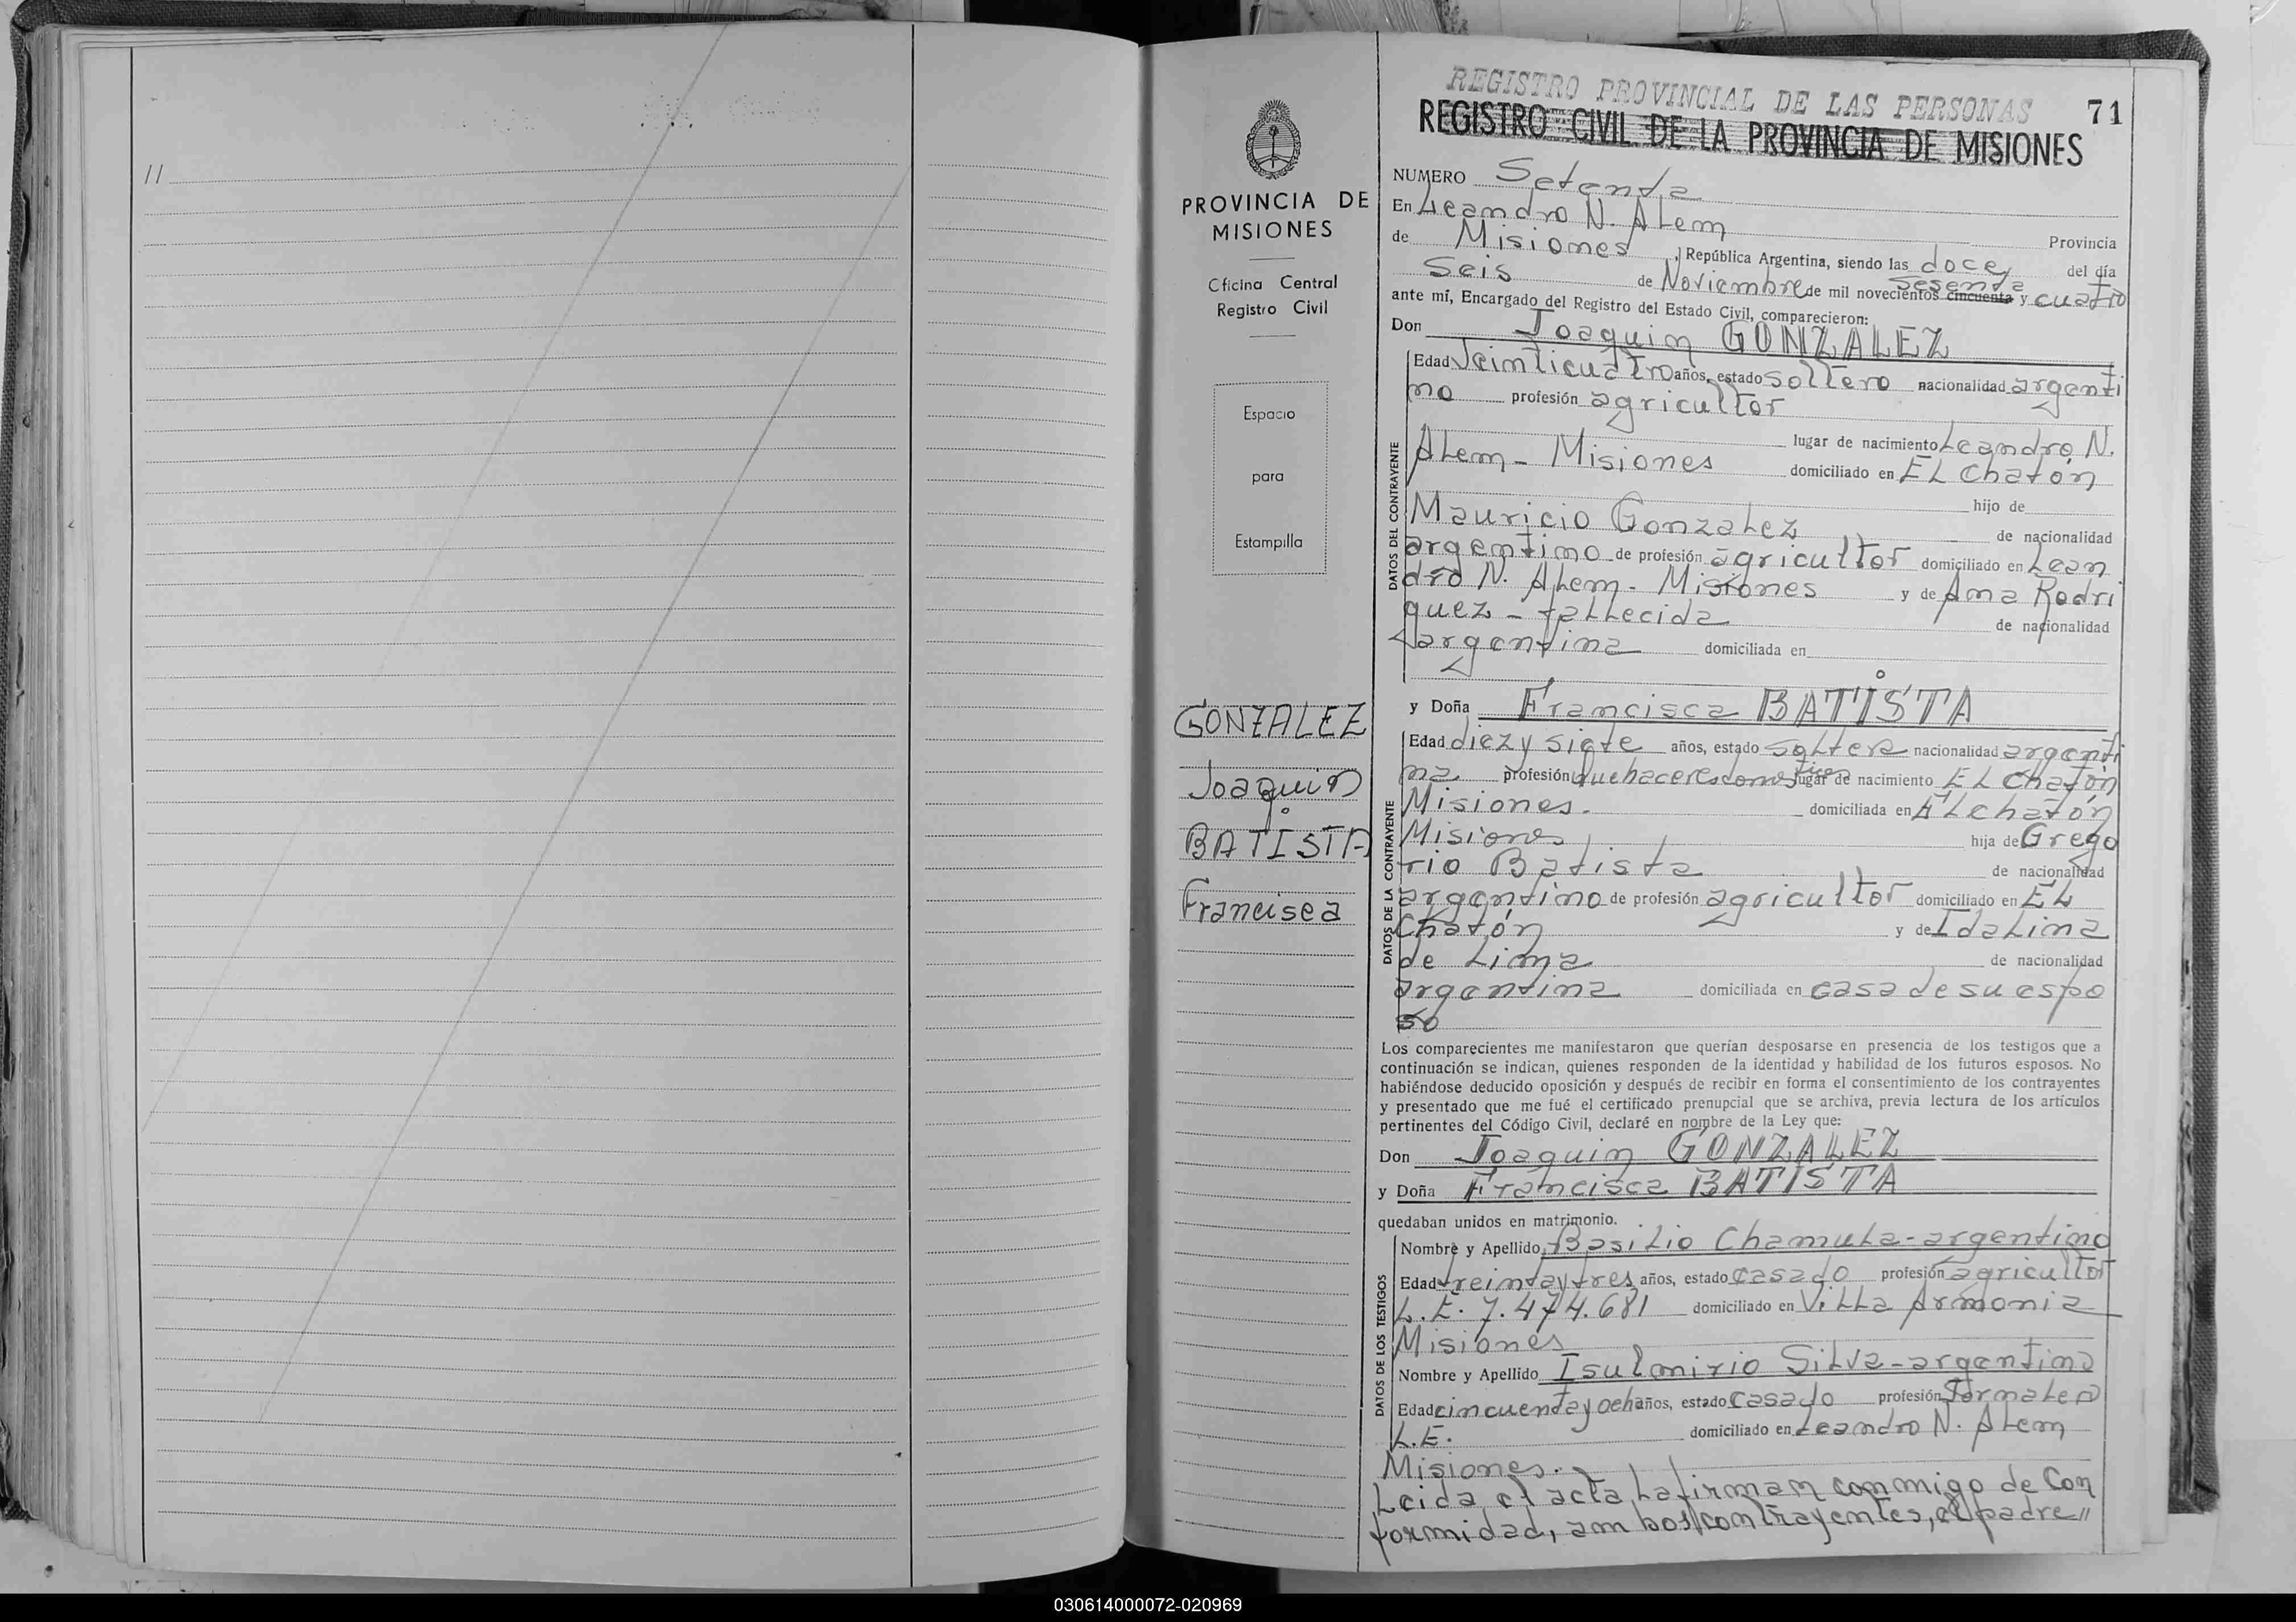 //
PROVINCIA DE
MISIONES
Oficina Central
Registro Civil
Espacio
para
Estampilla
GONZALEZ
Joaquin
BATISTA
Francisca
REGISTRO PROVINCIAL DE LAS PERSONAS
71
REGISTRO CIVIL DE LA PROVINCIA DE MISIONES
NUMERO Setenta
En Leandro N. Alem Provincia
de Misiones, República Argentina, siendo las doce, del día
seis de Noviembre de mil novecientos cincuenta sesenta y cuatro
ante mí, Encargado del Registro del Estado Civil, comparecieron:
Don Joaquin GONZALEZ
DATOS DEL CONTRAYENTE
Edad Veinticuatro años, estado soltero nacionalidad argenti
no profesión agricultor
lugar de nacimiento Leandro N.
Alem - Misiones domiciliado en El Chatón
hijo de
Mauricio Gonzalez de nacionalidad
argentino de profesión agricultor domiciliado en Lean
dro N. Alem - Misiones y de Ana Rodri
guez - fallecida de nacionalidad
argentina domiciliada en
y Doña Francisca BATISTA
DATOS DE LA CONTRAYENTE
Edad diez y siete años, estado soltera nacionalidad argenti
na profesión quehaceres domesticos lugar de nacimiento El Chatón
Misiones. domiciliada en El chatón
Misiones hija de Grego
rio Batista de nacionalidad
argentino de profesión agricultor domiciliado en El
Chatón y de Idalina
de Lima de nacionalidad
argentina domiciliada en casa de su espo
so
Los comparecientes me manifestaron que querían desposarse en presencia de los testigos que a
continuación se indican, quienes responden de la identidad y habilidad de los futuros esposos. No
habiéndose deducido oposición y después de recibir en forma el consentimiento de los contrayentes
y presentado que me fué el certificado prenupcial que se archiva, previa lectura de los artículos
pertinentes del Código Civil, declaré en nombre de la Ley que:
Don Joaquin GONZALEZ
y Doña Francisca BATISTA
quedaban unidos en matrimonio.
DATOS DE LOS TESTIGOS
Nombre y Apellido Basilio Chamula - argentino
Edad treinta y tres años, estado casado profesión agricultor
L.E. 7.474.681 domiciliado en Villa Armonia
Misiones
Nombre y Apellido Isulmirio Silva - argentino
Edad cincuenta y ocho años, estado casado profesión Jornalero
L.E. domiciliado en Leandro N. Alem
Misiones.
Leida el acta la firman conmigo de Con
formidad, ambos contrayentes, el padre //
030614000072-020969